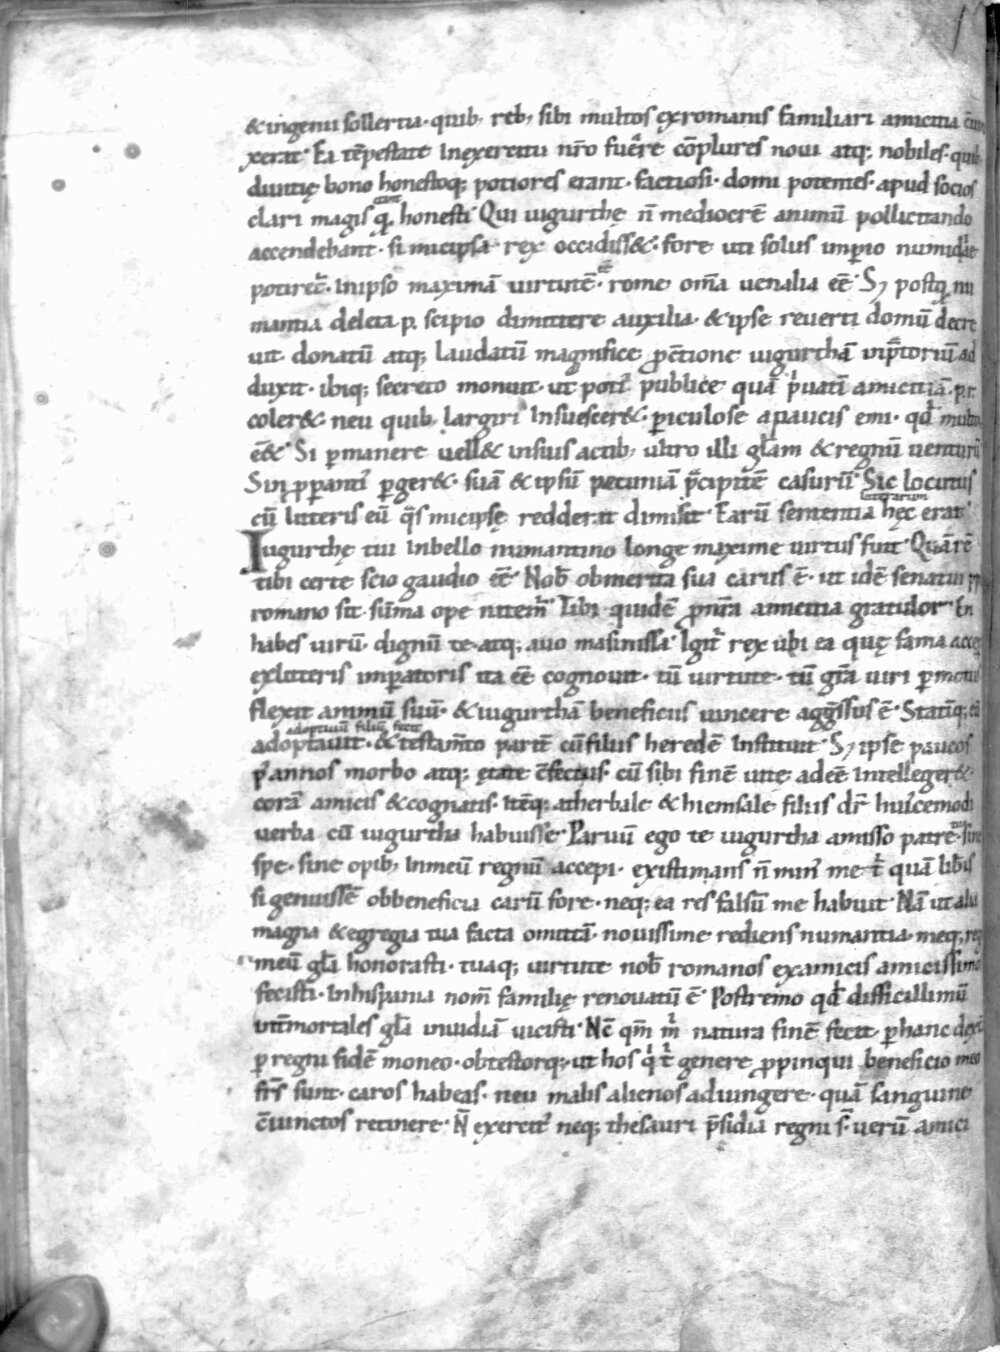 & ingenii sollertia· quib; reb; sibi multos exromanis familiari amicitia c̄iun
xerat· Ea tēpestate Inexercitu nr̄o fuer̄e cōplures noui atq; nobiles· quib;
diuitię bono honestoq; potiores erant· factiosi· domi potentes· apud socios
clari magis qͣ honesti· Qui iugurthę n̄ mediocrē animū pollicitando
accendebant· si micipsa rex occidiss&· fore uti solus imꝑio numidię
potiret̄· Inipso maximā uirtutē· rome om̄a uenalia ee· S; postqͣ nu
mantia deleta p. scipio dimittere auxilia· & ipse reuerti domū decre
uit· donatū atq; laudatū magnifice p̄ c̄tione iugurthā inp̄toriū ad
duxit· ibiq; secreto monuit· ut poti᾽ publice quā p̄uatī amicitiā· p.r.
coler& neu quib; largiri Insuescer&· ꝑiculose apaucis emi· qđ multo
ē&· Si ꝑmanere uell& insuis artib; ultro illi gl̄am & regnū uenturū
Sin p̄ꝑanti᾽ ꝑger&· suā & ipsū pecuniā p̄cipitē casurū· Sic locutus
litterarum
cū litteris eū q̄s micipsę redderat dimisit· Earū sententia hęc erat·
Iugurthę tui inbello numantino longe maxime uirtus fuit· Quā rē
tibi certe scio gaudio eē· Nob̄ obmerita sua carus ē· ut idē senatui
romano sit sūma ope nitem̄· Tibi quidē p̄ nr̄a amicitia gratulor· En
habes uirū dignū te· atq; auo masinissa· Igit̄ rex ubi ea quę fama acce
exlitteris imꝑatoris ita eē cognouit· tū uirtute· tū gr̄a uiri ꝑmotus
flexit animū suū· & iugurthā beneficiis uincere aggressus ē· Statīq; eū
adoptiuū filiū fecit
adoptauit· & testam̄to paritē cū filiis heredē Instituit· S; ipse paucos
p᾽ annos morbo atq; ętate c̄fectus· cū sibi finē uitę adeē Intelleger&·
corā amicis & cognatis· itēq; atherbale & hiemsale filiis dr̄ hui᾽cemodi
uerba cū iugurtha habuisse· Paruū ego te iugurtha amisso patre· sine
spe· sine opib; Inmeū regnū accepi· existimans n̄ min᾽ me t̄ quā lib̄is
si genuissē obbeneficia carū fore· neq; ea res falsū me habuit· Nā ut alia
magna & egregia tua facta omittā· nouissime rediens numantia· meq; reg
meū gl̄a honorasti· tuaq; uirtute nob̄ romanos examicis amicissimos
fecisti· Inhispania nom̄ familię renouatū ē· Postremo qđ difficillimū
int̄mortales gl̄a inuidiā uicisti· Nc̄ qm̄ m̄ natura finē fecit· ꝑhanc dext
ꝑ regni fidē moneo· obtestorq;· ut hos q᾽ t̄ genere p̄pinqui beneficio meo
fr̄s sunt· caros habeas· neu malis alienos adiungere· quā sanguine
c̄iunctos retinere· N̄ exercit᾽ neq; thesauri p̄sidia regni s̄· uerū amici